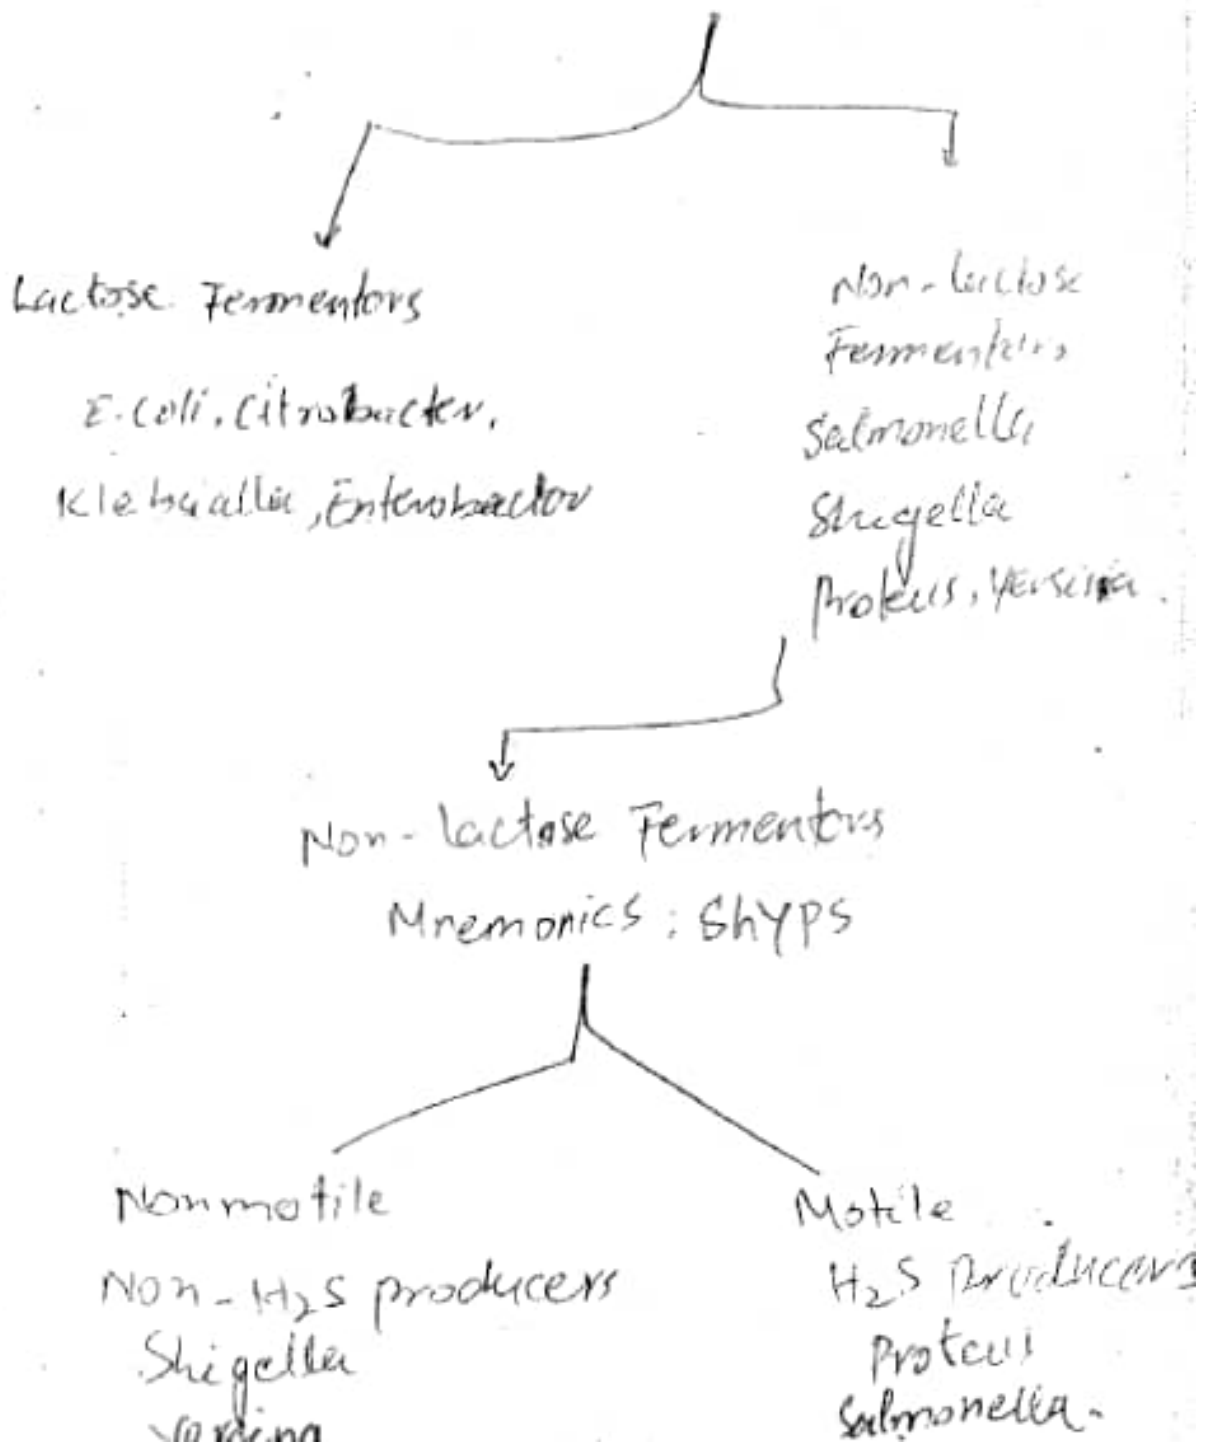 Lactose Fermentors
E. Coli, Citrobacter,
Klebsiella, Enterobactor
Non-lactose
Fermentors
Salmonella
Shigella
Proteus, Yersinia.
Non-lactose Fermentors
Mnemonics : ShYPS
Nonmotile
Non-H₂S producers
Shigella
Motile
H₂S Producers
Proteus
Salmonella.